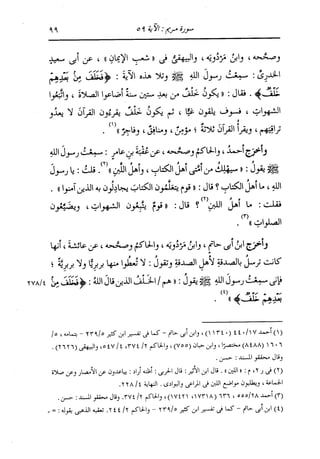 سورة مريم: الآية ٥٩
٩٩
وصححه، وابنُ مَرْدُويَه، والبيهقىُّ فى «شعبِ الإيمانِ»، عن أبى سعيدٍ
الخدرىِّ: سمِعْتُ رسولَ اللهِ ﷺ وتلا هذه الآيةَ: ﴿فَخَلَفَ مِنْ بَعْدِهِمْ
خَلْفٌ﴾. فقال: «يكونُ خَلْفٌ من بعدِ ستين سنةً أضاعوا الصلاةَ، واتَّبَعوا
الشهواتِ، فسوف يلقون غيًّا، ثم يكونُ خَلْفٌ يقرءُون القرآنَ لا يعدو
تراقيَهم، ويقرأُ القرآنَ ثلاثةٌ؛ مؤمنٌ، ومنافقٌ، وفاجرٌ»(١).
وأخرَج أحمدُ، والحاكمُ وصححه، عن عُقْبةَ بنِ عامرٍ: سمِعتُ رسولَ اللهِ
ﷺ يقولُ: «سيَهْلِكُ من أمتى أهلُ الكتابِ، وأهلُ اللَّبَنِ»(٢). قلتُ: يا رسولَ
اللهِ، ما أهلُ الكتابِ؟ قال: «قومٌ يتعلَّمون الكتابَ يجادِلون به الذين آمنوا».
فقلت: ما أهلُ اللبنِ(٢)؟ قال: «قومٌ يتَّبِعون الشهواتِ، ويضيِّعون
الصلواتِ»(٣).
وأخرَج ابنُ أبى حاتمٍ، وابنُ مَرْدُويَه، والحاكمُ وصححه، عن عائشةَ، أنها
كانت تُرسِلُ بالصدقةِ لأهلِ الصدقةِ وتقولُ: لا تُعطُوا منها بربريًّا ولا بربريةً؛
فإنى سمِعتُ رسولَ اللهِ ﷺ يقولُ: «هم الخَلْفُ الذين قال اللهُ: ﴿فَخَلَفَ مِنْ ٢٧٨/٤
بَعْدِهِمْ خَلْفٌ﴾»(٤).
(١) أحمد ٤٤٠/١٧ (١١٣٤٠)، وابن أبى حاتم - كما فى تفسير ابن كثير ٢٣٩/٥ - بتمامه، ٥/
١٦٠٦ (٨٤٨٨) مختصرًا، وابن حبان (٧٥٥)، والحاكم ٣٧٤/٢، ٥٤٧/٤، والبيهقى (٢٦٢٦).
وقال محققو المسند: حسن.
(٢) فى ر٢، م: «اللين». قال ابن الأثير: قال الحربى: أظنه أراد: يباعدون عن الأمصار وعن صلاة
الجماعة، ويطلبون مواضع اللبن فى المراعى والبوادى. النهاية ٢٢٨/٤.
(٣) أحمد ٥٥٥/٢٨، ٦٣٦ (١٧٣١٨، ١٧٤٢١)، والحاكم ٣٧٤/٢. وقال محققو المسند: حسن.
(٤) ابن أبى حاتم - كما فى تفسير ابن كثير ٢٣٩/٥ - والحاكم ٢٤٤/٢. تعقبه الذهبى بقوله: =